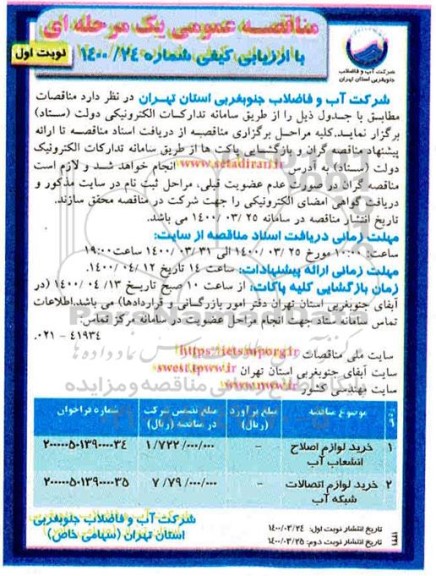 مناقصه عمومی یک مرحله ای
با ارزیابی کیفی شماره ۱۴۰۰/۲۴
نوبت اول
شرکت آب و فاضلاب
جنوبغربی استان تهران
شرکت آب و فاضلاب جنوبغربی استان تهران در نظر دارد مناقصات
مطابق با جدول ذیل را از طریق سامانه تدارکات الکترونیکی دولت (ستاد)
برگزار نماید. کلیه مراحل برگزاری مناقصه از دریافت اسناد مناقصه تا ارائه
پیشنهاد مناقصه گران و بازگشایی پاکت ها از طریق سامانه تدارکات الکترونیک
دولت (ستاد) به آدرس www.setadiran.ir انجام خواهد شد و لازم است
مناقصه گران در صورت عدم عضویت قبلی، مراحل ثبت نام در سایت مذکور و
دریافت گواهی امضای الکترونیکی را جهت شرکت در مناقصه محقق سازند.
تاریخ انتشار مناقصه در سامانه ۱۴۰۰/۰۳/۲۵ می باشد.
مهلت زمانی دریافت اسناد مناقصه از سایت:
ساعت: ۱۰:۰۰ مورخ ۱۴۰۰/۰۳/۲۵ الی ۱۴۰۰/۰۳/۳۱ ساعت ۱۹:۰۰
مهلت زمانی ارائه پیشنهادات: ساعت ۱۴ تاریخ ۱۴۰۰/۰۴/۱۲
زمان بازگشایی کلیه پاکات: از ساعت ۱۰ صبح تاریخ ۱۴۰۰/۰۴/۱۳ (در
آبفای جنوبغربی استان تهران دفتر امور بازرگانی و قراردادها) می باشد. اطلاعات
تماس سامانه ستاد جهت انجام مراحل عضویت در سامانه مرکز تماس:
۰۲۱-۴۱۹۳۴
سایت ملی مناقصات https://iets.mporg.ir
سایت آبفای جنوبغربی استان تهران
سایت مهندسی کشور
ردیف موضوع مناقصه مبلغ برآورد (ریال) مبلغ تضمین شرکت در مناقصه (ریال) شماره فراخوان
۱ خرید لوازم اصلاح انشعاب آب - ۱/۷۲۲/۰۰۰/۰۰۰ ۲۰۰۰۰۰۵۰۱۳۹۰۰۰۰۳۴
۲ خرید لوازم اتصالات شبکه آب - ۷/۷۹۰/۰۰۰/۰۰۰ ۲۰۰۰۰۰۵۰۱۳۹۰۰۰۰۳۵
تاریخ انتشار نوبت اول: ۱۴۰۰/۰۳/۲۴
تاریخ انتشار نوبت دوم: ۱۴۰۰/۰۳/۲۵
شرکت آب و فاضلاب جنوبغربی
استان تهران (سهامی خاص)